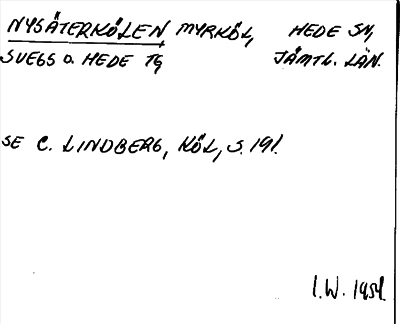 NYSÄTERKÖLEN MYRKÖL, HEDE SN,
SVEGS O. HEDE TG JÄMTL. LÄN.
SE C. LINDBERG, KÖL, S. 191.
I.W. 1954.